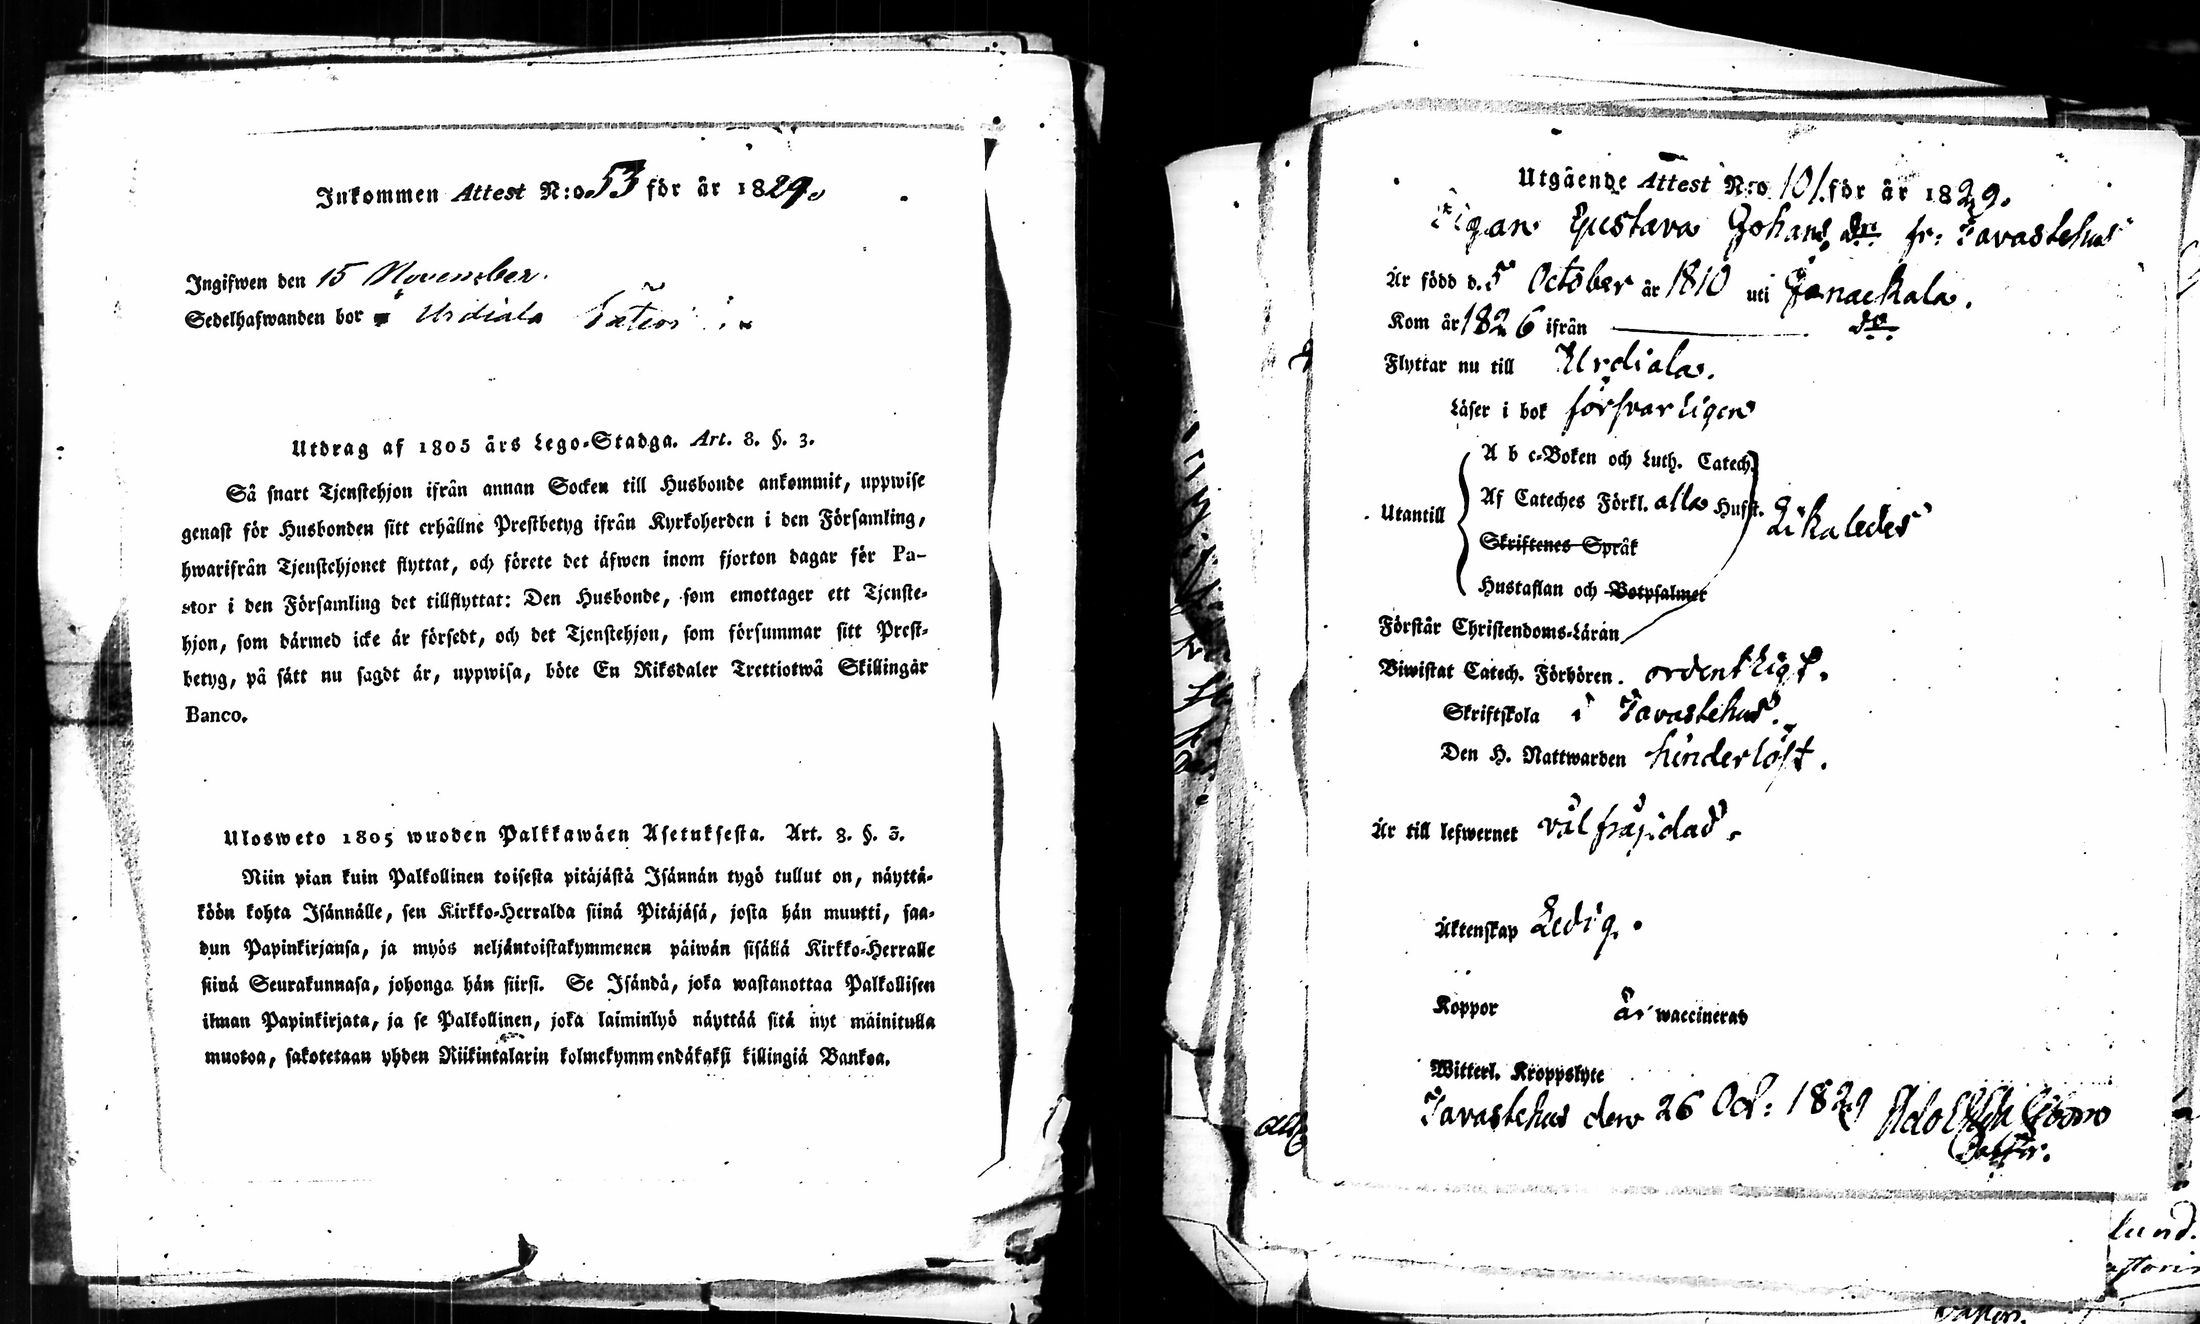 Inkommen Attest N:o 53 för år 1829.
Ingifwen den 15 November.
Sedelhafwanden bor i Urdiala
Utdrag af 1805 års Lego-Stadga. Art. 8. §. 3.
Så snart Tjenstehjon ifrån annan Socken till Husbonde ankommit, uppwise
genast för Husbonden sitt erhållne Prestbetyg ifrån Kyrkoherden i den Församling,
hwarifrån Tjenstehjonet flyttat, och förete det äfwen inom fjorton dagar för Pa-
stor i den Församling det tillflyttat: Den Husbonde, som emottager ett Tjenste-
hjon, som därmed icke är försedt, och det Tjenstehjon, som försummar sitt Prest-
betyg, på sätt nu sagdt är, uppwisa, böte En Riksdaler Trettiotwå Skillingar
Banco.
Ulosweto 1805 wuoden Palkkawäen Asetuksesta. Art. 8. §. 3.
Niin pian kuin Palkollinen toisesta pitäjästä Isännän tygö tullut on, näyttä-
köön kohta Isännälle, sen Kirkko-Herralda siinä Pitäjäsä, josta hän muutti, saa-
dun Papinkirjansa, ja myös neljäntoistakymmenen päiwän sisällä Kirkko-Herralle
siinä Seurakunnasa, johonga hän siirsi. Se Isändä, joka wastanottaa Palkollisen
ilman Papinkirjata, ja se Palkollinen, joka laiminlyö näyttää sitä nyt mainitulla
muotoa, sakotetaan yhden Riikintalarin kolmekymmendäkaksi killingiä Bankoa.
Utgående Attest N:o 101. för år 1829.
Pigan Gustava Johans dr. fr: Tavastehus
Är född d. 5 October år 1810 uti Janackala.
Kom år 1826 ifrån do
Flyttar nu till Urdiala.
Läser i bok försvarligen
A b c-Boken och Luth. Catech.
Utantill Af Cateches Förkl. alla Hufst. Likaledes
Skriftenes Språk
Hustaflan och Botpsalmer
Förstår Christendoms-Läran
Biwistat Catech. Förhören. ordentligt.
Skriftskola i Tavastehus.
Den H. Nattwarden hinderlöst.
Är till lefwernet väl fräjdad.
Äktenskap Ledig.
Koppor Är waccinerad
Witterl. Kroppslyte
Tavastehus den 26 Oct: 1829 Adolph